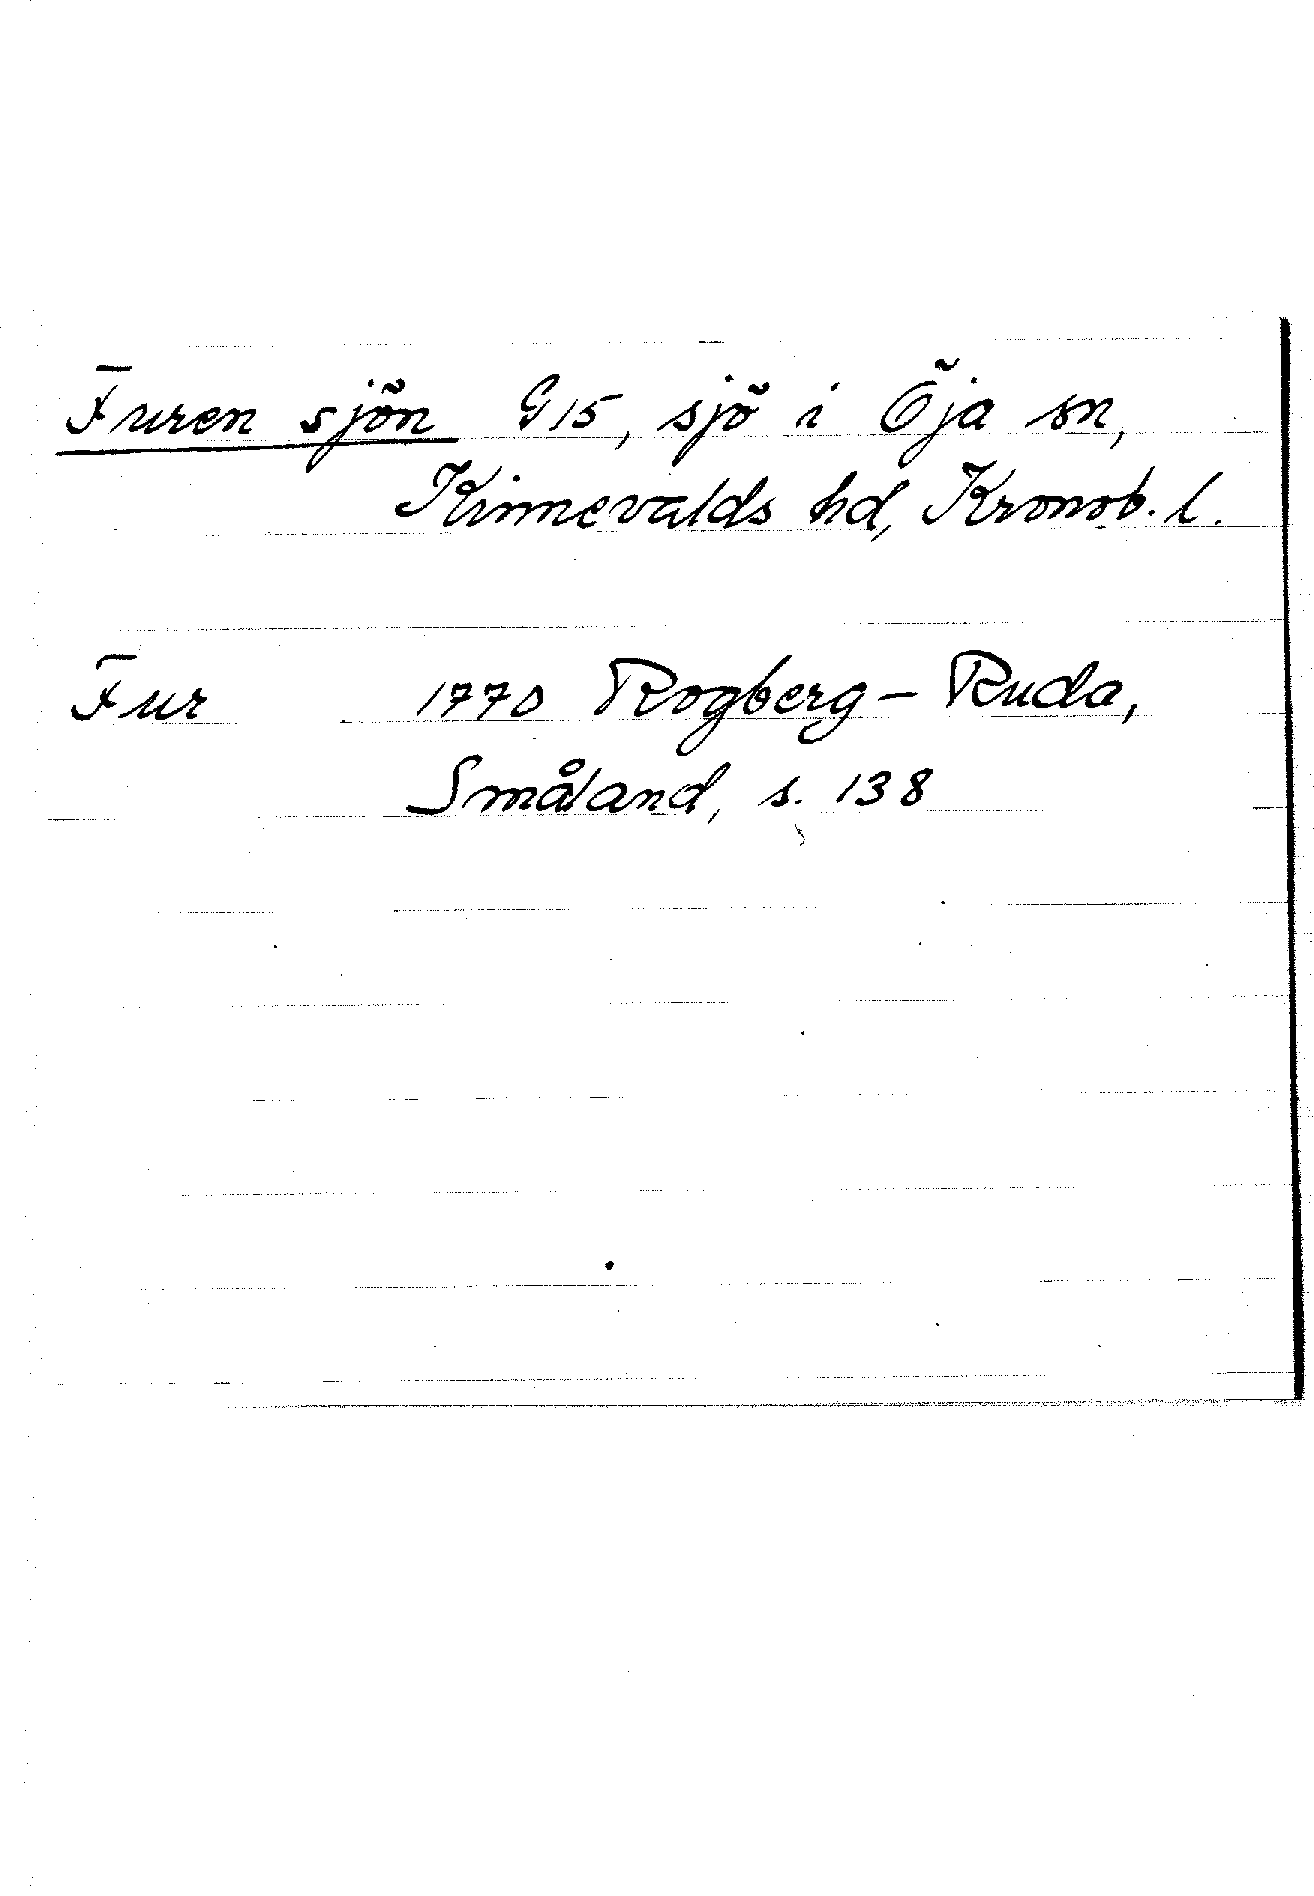 Furen sjön G 15, sjö i Öja sn,
Kinnevalds hd, Kronob. l.
Fur 1770 Rogberg - Ruda,
Småland, s. 138